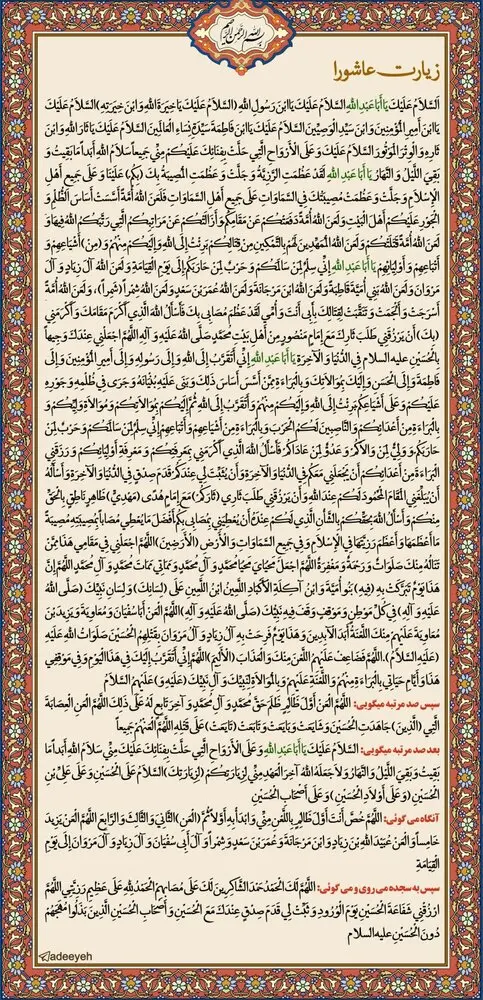 بسم الله الرحمن الرحیم
زیارت عاشورا
اَلسَّلامُ عَلَيْكَ يَا أَبَا عَبْدِ اللهِ السَّلامُ عَلَيْكَ يَا ابْنَ رَسُولِ اللهِ (السَّلامُ عَلَيْكَ يَا خِيَرَةَ اللهِ وَابْنَ خِيَرَتِهِ) السَّلامُ عَلَيْكَ
يَا ابْنَ أَمِيرِ الْمُؤْمِنِينَ وَابْنَ سَيِّدِ الْوَصِيِّينَ السَّلامُ عَلَيْكَ يَا ابْنَ فَاطِمَةَ سَيِّدَةِ نِسَاءِ الْعَالَمِينَ السَّلامُ عَلَيْكَ يَا ثَارَ اللهِ وَابْنَ
ثَارِهِ وَالْوِتْرَ الْمَوْتُورَ السَّلامُ عَلَيْكَ وَعَلَى الْأَرْوَاحِ الَّتِي حَلَّتْ بِفِنَائِكَ عَلَيْكُمْ مِنِّي جَمِيعاً سَلامُ اللهِ أَبَداً مَا بَقِيتُ وَ
بَقِيَ اللَّيْلُ وَالنَّهَارُ يَا أَبَا عَبْدِ اللهِ لَقَدْ عَظُمَتِ الرَّزِيَّةُ وَجَلَّتْ وَعَظُمَتِ الْمُصِيبَةُ بِكَ (بِكُمْ) عَلَيْنَا وَعَلَى جَمِيعِ أَهْلِ
الْإِسْلامِ وَجَلَّتْ وَعَظُمَتْ مُصِيبَتُكَ فِي السَّمَاوَاتِ عَلَى جَمِيعِ أَهْلِ السَّمَاوَاتِ فَلَعَنَ اللهُ أُمَّةً أَسَّسَتْ أَسَاسَ الظُّلْمِ وَ
الْجَوْرِ عَلَيْكُمْ أَهْلَ الْبَيْتِ وَلَعَنَ اللهُ أُمَّةً دَفَعَتْكُمْ عَنْ مَقَامِكُمْ وَأَزَالَتْكُمْ عَنْ مَرَاتِبِكُمُ الَّتِي رَتَّبَكُمُ اللهُ فِيهَا وَ
لَعَنَ اللهُ أُمَّةً قَتَلَتْكُمْ وَلَعَنَ اللهُ الْمُمَهِّدِينَ لَهُمْ بِالتَّمْكِينِ مِنْ قِتَالِكُمْ بَرِئْتُ إِلَى اللهِ وَإِلَيْكُمْ مِنْهُمْ وَ (مِنْ) أَشْيَاعِهِمْ وَ
أَتْبَاعِهِمْ وَأَوْلِيَائِهِمْ يَا أَبَا عَبْدِ اللهِ إِنِّي سِلْمٌ لِمَنْ سَالَمَكُمْ وَحَرْبٌ لِمَنْ حَارَبَكُمْ إِلَى يَوْمِ الْقِيَامَةِ وَلَعَنَ اللهُ آلَ زِيَادٍ وَآلَ
مَرْوَانَ وَلَعَنَ اللهُ بَنِي أُمَيَّةَ قَاطِبَةً وَلَعَنَ اللهُ ابْنَ مَرْجَانَةَ وَلَعَنَ اللهُ عُمَرَ بْنَ سَعْدٍ وَلَعَنَ اللهُ شِمْراً (شَمِراً)، وَلَعَنَ اللهُ أُمَّةً
أَسْرَجَتْ وَأَلْجَمَتْ وَتَنَقَّبَتْ لِقِتَالِكَ بِأَبِي أَنْتَ وَأُمِّي لَقَدْ عَظُمَ مُصَابِي بِكَ فَأَسْأَلُ اللهَ الَّذِي أَكْرَمَ مَقَامَكَ وَأَكْرَمَنِي
(بِكَ) أَنْ يَرْزُقَنِي طَلَبَ ثَارِكَ مَعَ إِمَامٍ مَنْصُورٍ مِنْ أَهْلِ بَيْتِ مُحَمَّدٍ صَلَّى اللهُ عَلَيْهِ وَآلِهِ اللَّهُمَّ اجْعَلْنِي عِنْدَكَ وَجِيهاً
بِالْحُسَيْنِ علیه السلام فِي الدُّنْيَا وَالْآخِرَةِ يَا أَبَا عَبْدِ اللهِ إِنِّي أَتَقَرَّبُ إِلَى اللهِ وَإِلَى رَسُولِهِ وَإِلَى أَمِيرِ الْمُؤْمِنِينَ وَإِلَى
فَاطِمَةَ وَإِلَى الْحَسَنِ وَإِلَيْكَ بِمُوَالاتِكَ وَبِالْبَرَاءَةِ مِمَّنْ أَسَّسَ أَسَاسَ ذَلِكَ وَبَنَى عَلَيْهِ بُنْيَانَهُ وَجَرَى فِي ظُلْمِهِ وَجَوْرِهِ
عَلَيْكُمْ وَعَلَى أَشْيَاعِكُمْ بَرِئْتُ إِلَى اللهِ وَإِلَيْكُمْ مِنْهُمْ وَأَتَقَرَّبُ إِلَى اللهِ ثُمَّ إِلَيْكُمْ بِمُوَالاتِكُمْ وَمُوَالاةِ وَلِيِّكُمْ وَ
بِالْبَرَاءَةِ مِنْ أَعْدَائِكُمْ وَالنَّاصِبِينَ لَكُمُ الْحَرْبَ وَبِالْبَرَاءَةِ مِنْ أَشْيَاعِهِمْ وَأَتْبَاعِهِمْ إِنِّي سِلْمٌ لِمَنْ سَالَمَكُمْ وَحَرْبٌ لِمَنْ
حَارَبَكُمْ وَوَلِيٌّ لِمَنْ وَالاكُمْ وَعَدُوٌّ لِمَنْ عَادَاكُمْ فَأَسْأَلُ اللهَ الَّذِي أَكْرَمَنِي بِمَعْرِفَتِكُمْ وَمَعْرِفَةِ أَوْلِيَائِكُمْ وَرَزَقَنِي
الْبَرَاءَةَ مِنْ أَعْدَائِكُمْ أَنْ يَجْعَلَنِي مَعَكُمْ فِي الدُّنْيَا وَالْآخِرَةِ وَأَنْ يُثَبِّتَ لِي عِنْدَكُمْ قَدَمَ صِدْقٍ فِي الدُّنْيَا وَالْآخِرَةِ وَأَسْأَلُهُ
أَنْ يُبَلِّغَنِي الْمَقَامَ الْمَحْمُودَ لَكُمْ عِنْدَ اللهِ وَأَنْ يَرْزُقَنِي طَلَبَ ثَارِي (ثَارِكُمْ) مَعَ إِمَامٍ هُدًى (مَهْدِيٍّ) ظَاهِرٍ نَاطِقٍ بِالْحَقِّ
مِنْكُمْ وَأَسْأَلُ اللهَ بِحَقِّكُمْ وَبِالشَّأْنِ الَّذِي لَكُمْ عِنْدَهُ أَنْ يُعْطِيَنِي بِمُصَابِي بِكُمْ أَفْضَلَ مَا يُعْطِي مُصَاباً بِمُصِيبَتِهِ مُصِيبَةً
مَا أَعْظَمَهَا وَأَعْظَمَ رَزِيَّتَهَا فِي الْإِسْلامِ وَفِي جَمِيعِ السَّمَاوَاتِ وَالْأَرْضِ (الْأَرَضِينَ) اللَّهُمَّ اجْعَلْنِي فِي مَقَامِي هَذَا مِمَّنْ
تَنَالُهُ مِنْكَ صَلَوَاتٌ وَرَحْمَةٌ وَمَغْفِرَةٌ اللَّهُمَّ اجْعَلْ مَحْيَايَ مَحْيَا مُحَمَّدٍ وَآلِ مُحَمَّدٍ وَمَمَاتِي مَمَاتَ مُحَمَّدٍ وَآلِ مُحَمَّدٍ اللَّهُمَّ إِنَّ
هَذَا يَوْمٌ تَبَرَّكَتْ بِهِ (فِيهِ) بَنُو أُمَيَّةَ وَابْنُ آكِلَةِ الْأَكْبَادِ اللَّعِينُ ابْنُ اللَّعِينِ عَلَى (لِسَانِكَ) وَلِسَانِ نَبِيِّكَ (صَلَّى اللهُ
عَلَيْهِ وَآلِهِ) فِي كُلِّ مَوْطِنٍ وَمَوْقِفٍ وَقَفَ فِيهِ نَبِيُّكَ (صَلَّى اللهُ عَلَيْهِ وَآلِهِ) اللَّهُمَّ الْعَنْ أَبَا سُفْيَانَ وَمُعَاوِيَةَ وَيَزِيدَ بْنَ
مُعَاوِيَةَ عَلَيْهِمْ مِنْكَ اللَّعْنَةُ أَبَدَ الْآبِدِينَ وَهَذَا يَوْمٌ فَرِحَتْ بِهِ آلُ زِيَادٍ وَآلُ مَرْوَانَ بِقَتْلِهِمُ الْحُسَيْنَ صَلَوَاتُ اللهِ عَلَيْهِ
(عَلَيْهِ السَّلامُ). اللَّهُمَّ فَضَاعِفْ عَلَيْهِمُ اللَّعْنَ مِنْكَ وَالْعَذَابَ (الْأَلِيمَ) اللَّهُمَّ إِنِّي أَتَقَرَّبُ إِلَيْكَ فِي هَذَا الْيَوْمِ وَفِي مَوْقِفِي
هَذَا وَأَيَّامِ حَيَاتِي بِالْبَرَاءَةِ مِنْهُمْ وَاللَّعْنَةِ عَلَيْهِمْ وَبِالْمُوَالاةِ لِنَبِيِّكَ وَآلِ نَبِيِّكَ (عَلَيْهِ وَ) عَلَيْهِمُ السَّلامُ
سپس صد مرتبه میگویی: اللَّهُمَّ الْعَنْ أَوَّلَ ظَالِمٍ ظَلَمَ حَقَّ مُحَمَّدٍ وَآلِ مُحَمَّدٍ وَآخِرَ تَابِعٍ لَهُ عَلَى ذَلِكَ اللَّهُمَّ الْعَنِ الْعِصَابَةَ
الَّتِي (الَّذِينَ) جَاهَدَتِ الْحُسَيْنَ وَشَايَعَتْ وَبَايَعَتْ وَتَابَعَتْ (تَايَعَتْ) عَلَى قَتْلِهِ اللَّهُمَّ الْعَنْهُمْ جَمِيعاً
بعد صد مرتبه میگویی: السَّلامُ عَلَيْكَ يَا أَبَا عَبْدِ اللهِ وَعَلَى الْأَرْوَاحِ الَّتِي حَلَّتْ بِفِنَائِكَ عَلَيْكَ مِنِّي سَلامُ اللهِ أَبَداً مَا
بَقِيتُ وَبَقِيَ اللَّيْلُ وَالنَّهَارُ وَلا جَعَلَهُ اللهُ آخِرَ الْعَهْدِ مِنِّي لِزِيَارَتِكُمْ (لِزِيَارَتِكَ) السَّلامُ عَلَى الْحُسَيْنِ وَعَلَى عَلِيِّ بْنِ
الْحُسَيْنِ (وَعَلَى أَوْلادِ الْحُسَيْنِ) وَعَلَى أَصْحَابِ الْحُسَيْنِ
آنگاه می گوئی: اللَّهُمَّ خُصَّ أَنْتَ أَوَّلَ ظَالِمٍ بِاللَّعْنِ مِنِّي وَابْدَأْ بِهِ أَوَّلاً ثُمَّ (الْعَنِ) الثَّانِيَ وَالثَّالِثَ وَالرَّابِعَ اللَّهُمَّ الْعَنْ يَزِيدَ
خَامِساً وَالْعَنْ عُبَيْدَ اللهِ بْنَ زِيَادٍ وَابْنَ مَرْجَانَةَ وَعُمَرَ بْنَ سَعْدٍ وَشِمْراً وَآلَ أَبِي سُفْيَانَ وَآلَ زِيَادٍ وَآلَ مَرْوَانَ إِلَى يَوْمِ
الْقِيَامَةِ
سپس به سجده می روی و می گوئی: اللَّهُمَّ لَكَ الْحَمْدُ حَمْدَ الشَّاكِرِينَ لَكَ عَلَى مُصَابِهِمْ الْحَمْدُ لِلهِ عَلَى عَظِيمِ رَزِيَّتِي اللَّهُمَّ
ارْزُقْنِي شَفَاعَةَ الْحُسَيْنِ يَوْمَ الْوُرُودِ وَثَبِّتْ لِي قَدَمَ صِدْقٍ عِنْدَكَ مَعَ الْحُسَيْنِ وَأَصْحَابِ الْحُسَيْنِ الَّذِينَ بَذَلُوا مُهَجَهُمْ
دُونَ الْحُسَيْنِ علیه السلام
adeeyeh